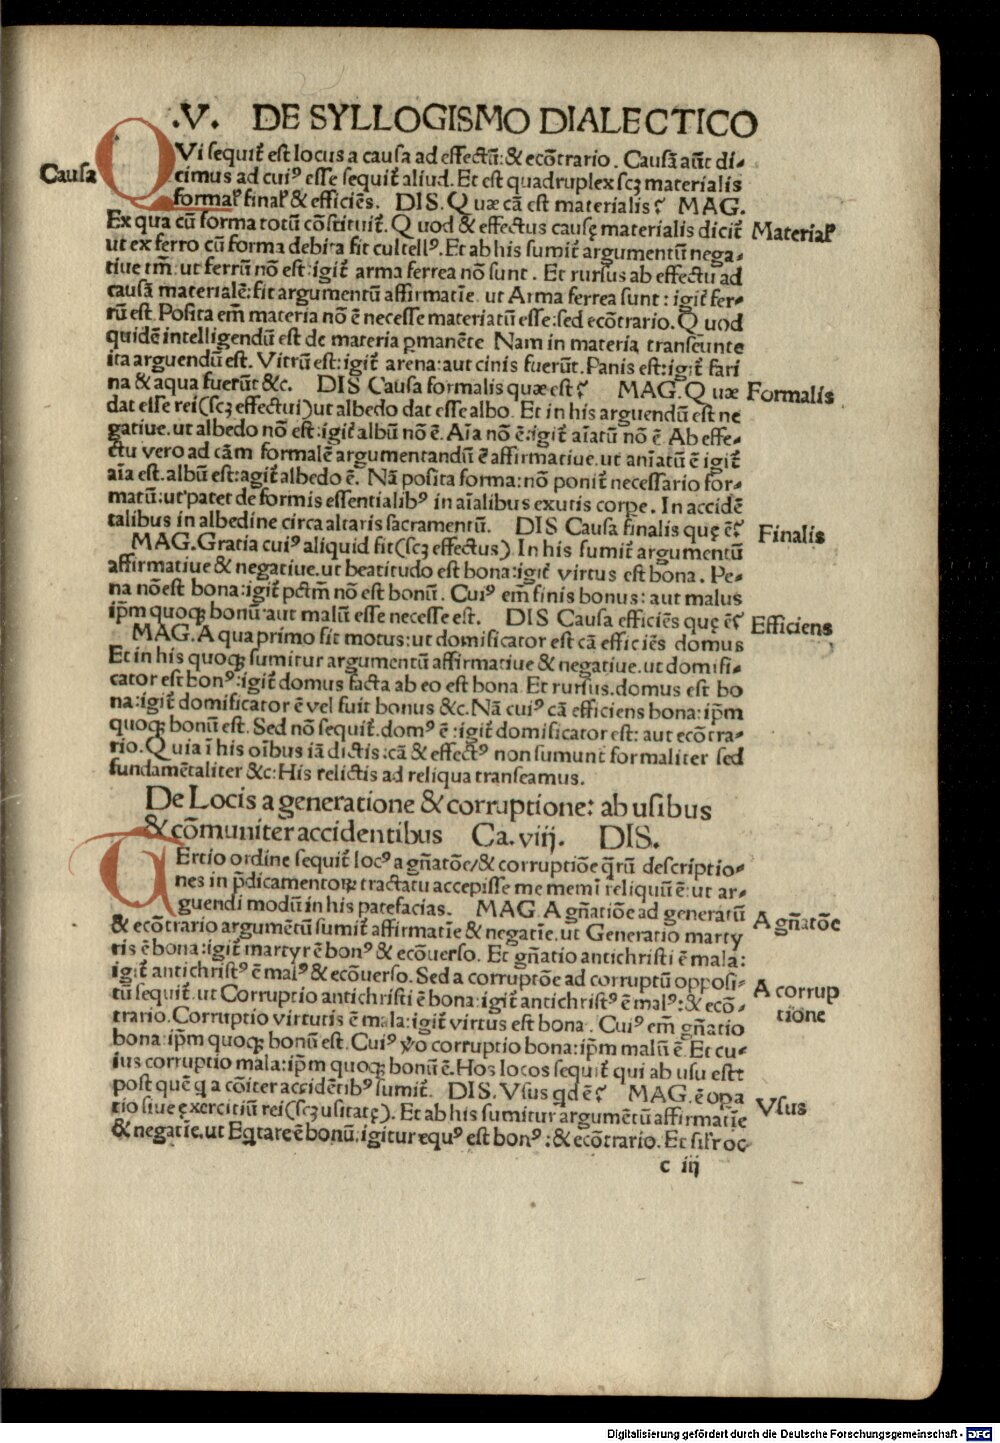 .V. DE SYLLOGISMO DIALECTICO
Causa
QVi sequit᷑ est locus a causa ad effectũ: & ecõtrario. Causã aũt di-
cimus ad cuiꝰ esse sequit᷑ aliud. Et est quadruplex scꝫ materialis
formal᷑ final᷑ & efficiẽs. DIS. Quæ cã est materialis? MAG.
Ex qua cũ forma totũ cõstituit᷑. Quod & effectus causę materialis dicit᷑
Material᷑
ut ex ferro cũ forma debita fit cultellꝰ. Et ab his sumit᷑ argumentũ nega-
tiue tm̃. ut ferrũ nõ est: igit᷑ arma ferrea nõ sunt. Et rursus ab effectu ad
causã materialẽ: fit argumentũ affirmatiẽ. ut Arma ferrea sunt: igit᷑ fer-
rũ est. Posita em̃ materia nõ ẽ necesse materiatũ esse: sed ecõtrario. Quod
quidẽ intelligendũ est de materia ꝑmanẽte. Nam in materia transeũnte
ita arguendũ est. Vitrũ est: igit᷑ arena: aut cinis fuerũt. Panis est: igit᷑ fari
na & aqua fuerũt &c. DIS Causa formalis quæ est? MAG. Quæ
Formalis
dat esse rei (scꝫ effectui) ut albedo dat esse albo. Et in his arguendũ est ne
gatiue. ut albedo nõ est: igit᷑ albũ nõ ẽ. Aĩa nõ ẽ: igit᷑ aĩatũ nõ ẽ. Ab effe-
ctu vero ad cãm formalẽ argumentandũ ẽ affirmatiue. ut anĩatũ ẽ igit᷑
aĩa est. albũ est: agit᷑ albedo ẽ. Nã posita forma: nõ ponit᷑ necessario for-
matũ: ut patet de formis essentialibꝰ in aĩalibus exutis corꝑe. In accidẽ
talibus in albedine circa altaris sacramentũ. DIS Causa finalis quę ẽ?
Finalis
MAG. Gratia cuiꝰ aliquid fit (scꝫ effectus) In his sumit᷑ argumentũ
affirmatiue & negatiue. ut beatitudo est bona: igit᷑ virtus est bona. Pe-
na nõ est bona: igit᷑ pctm̃ nõ est bonũ. Cuiꝰ em̃ finis bonus: aut malus
ip̃m quoqꝫ bonũ aut malũ esse necesse est. DIS Causa efficiẽs quę ẽ?
Efficiens
MAG. A qua primo fit motus: ut domificator est cã efficiẽs domus
Et in his quoqꝫ sumitur argumentũ affirmatiue & negatiue. ut domifi-
cator est bonꝰ: igit᷑ domus facta ab eo est bona. Et rursus. domus est bo
na: igit᷑ domificator ẽ vel fuit bonus &c. Nã cuiꝰ cã efficiens bona: ip̃m
quoqꝫ bonũ est. Sed nõ sequit᷑. domꝰ ẽ: igit᷑ domificator est: aut ecõtra-
rio. Quia ĩ his oĩbus iã dictis: cã & effectꝰ non sumunt᷑ formaliter sed
fundamẽtaliter &c: His relictis ad reliqua transeamus.
De Locis a generatione & corruptione: ab usibus
& cõmuniter accidentibus Ca. viij. DIS.
TErtio ordine sequit᷑ locꝰ a gñatõe/& corruptiõe q̃rũ descriptio-
nes in p̃dicamentoꝝ tractatu accepisse me memĩ reliquũ ẽ: ut ar-
guendi modũ in his patefacias. MAG. A gñatiõe ad generatũ
A gñatõe
& ecõtrario argumẽtũ sumit᷑ affirmatiẽ & negatiẽ. ut Generatio marty
ris ẽ bona: igit᷑ martyr ẽ bonꝰ & ecõuerso. Et gñatio antichristi ẽ mala:
igit᷑ antichristꝰ ẽ malꝰ & ecõuerso. Sed a corruptõe ad corruptũ opposi-
A corrup
tũ sequit᷑. ut Corruptio antichristi ẽ bona: igit᷑ antichristꝰ ẽ malꝰ: & ecõ-
tione
trario. Corruptio virtutis ẽ mala: igit᷑ virtus est bona. Cuiꝰ em̃ gñatio
bona: ip̃m quoqꝫ bonũ est. Cuiꝰ ṽo corruptio bona: ip̃m malũ ẽ. Et cu-
ius corruptio mala: ip̃m quoqꝫ bonũ ẽ. Hos locos sequit᷑ qui ab usu est:
post quẽ q̃ a cõiter accidẽtibꝰ sumit᷑. DIS. Vsus qd ẽ? MAG. ẽ opa
Vsus
tio siue ęxercitiũ rei (scꝫ usitatę). Et ab his sumitur argumẽtũ affirmatiẽ
& negatiẽ. ut Eqtare ẽ bonũ: igitur equꝰ est bonꝰ: & ecõtrario. Et sil̃r oc
c iij
Digitalisierung gefördert durch die Deutsche Forschungsgemeinschaft - DFG